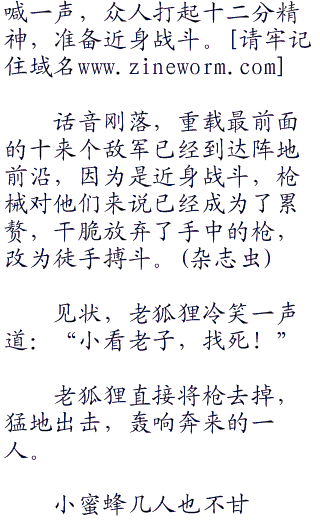 喊一声，众人打起十二分精
神，准备近身战斗。[请牢记
住域名www.zineworm.com]
话音刚落，重载最前面
的十来个敌军已经到达阵地
前沿，因为是近身战斗，枪
械对他们来说已经成为了累
赘，干脆放弃了手中的枪，
改为徒手搏斗。(杂志虫)
见状，老狐狸冷笑一声
道：“小看老子，找死！”
老狐狸直接将枪去掉，
猛地出击，轰响奔来的一
人。
小蜜蜂几人也不甘